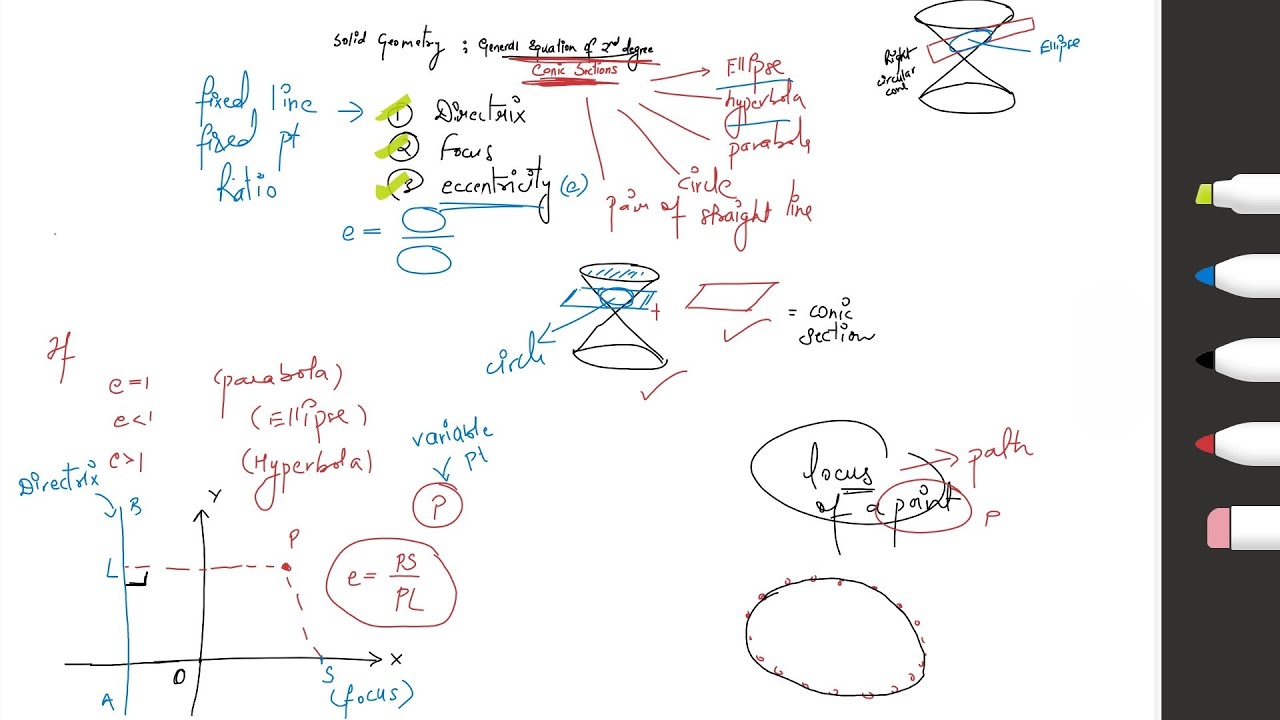 Solid Geometry : General Equation of 2nd degree
Conic Sections
Ellipse
hyperbola
parabola
circle
pair of straight line
fixed line →
fixed pt
Ratio
① Directrix
② Focus
③ eccentricity (e)
e =
Right
circular
cone
Ellipse
circle
+
= conic
section
If
e=1 (parabola)
e<1 (Ellipse)
e>1 (Hyperbola)
variable
pt
P
Directrix
B
Y
L
P
e = PS/PL
X
O
A
S
(focus)
locus → path
of a point
P